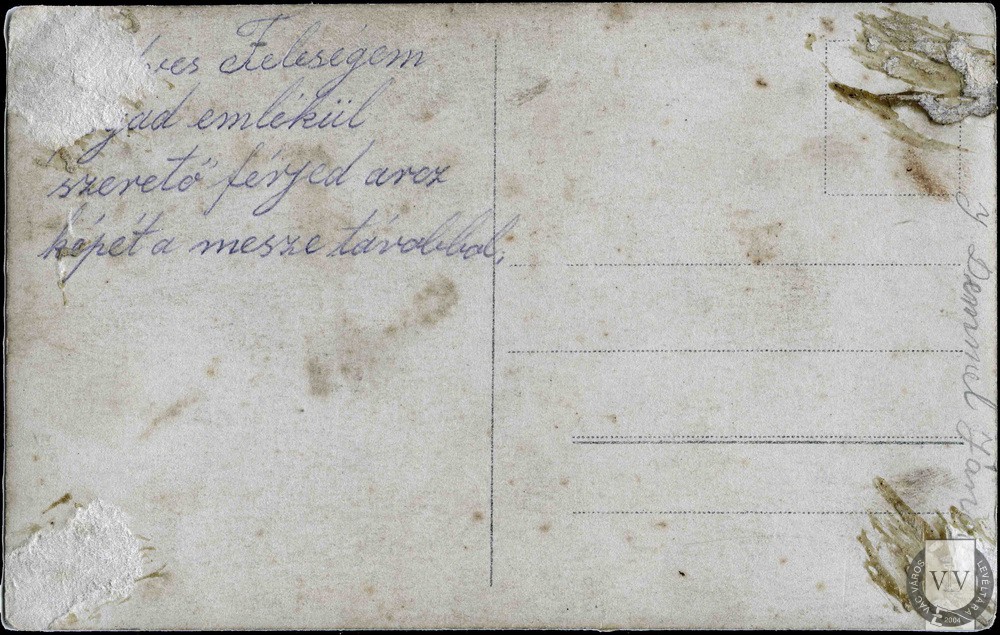 ves Feleségem
gad emlékül
szerető férjed arcz
képét a mesze távobbol,
Demmel
VÁC VÁROS LEVÉLTÁRA
VLV
2004